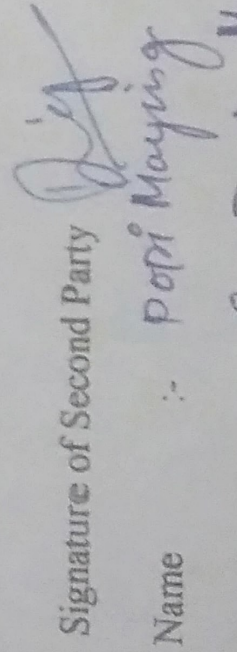 Signature of Second Party
Name :- Popi Maying